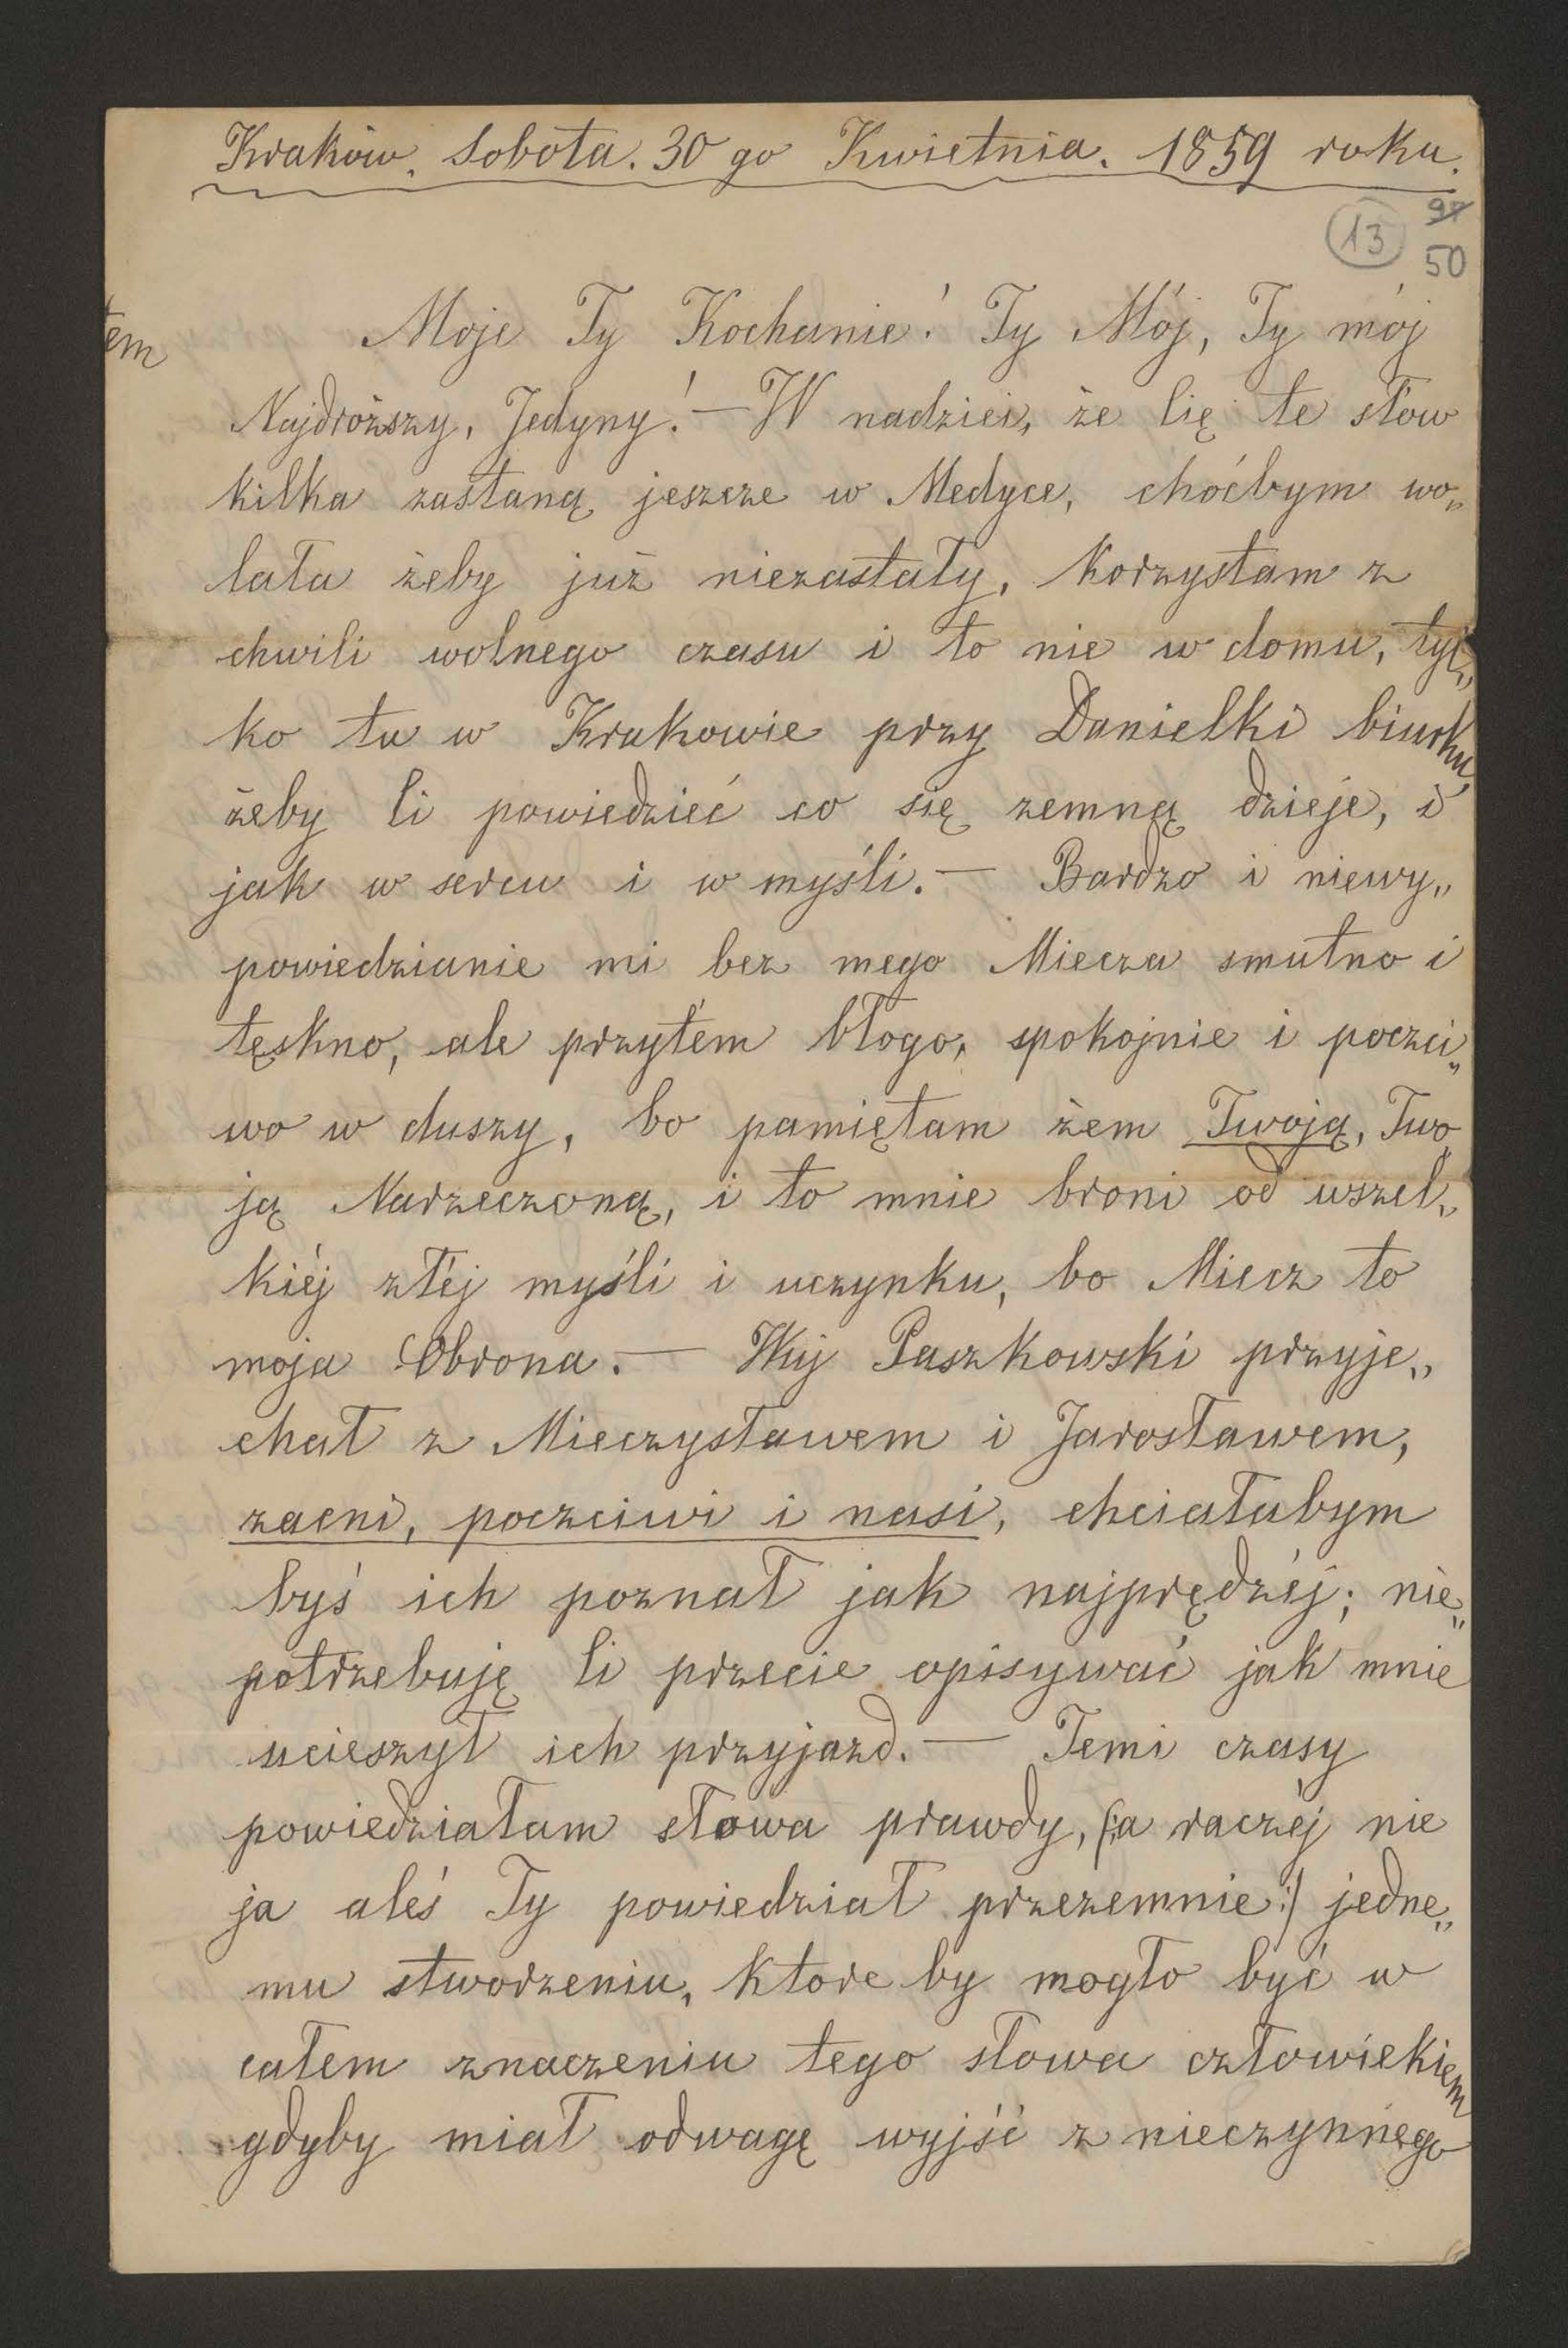 Kraków. Sobota. 30 go Kwietnia. 1859 roku.
97
13
50
Moje Ty Kochanie! Ty Mój, Ty mój
tem
Najdroższy, Jedyny! — W nadziei, że Cię te słow
kilka zastaną jeszcze w Medyce, choćbym wo„
lała żeby już niezastały, korzystam z
chwili wolnego czasu i to nie w domu, tyl„
ko tu w Krakowie przy Danielki biurku,
żeby Ci powiedzieć co się zemną dzieje, i
jak w sercu i w myśli. — Bardzo i niewy„
powiedzianie mi bez mego Miecza smutno i
tęskno, ale przytém błogo, spokojnie i poczci„
wo w duszy, bo pamiętam żem Twoją, Two„
ją Narzeczoną, i to mnie broni od wszel„
kiéj złéj myśli i uczynku, bo Miecz to
moja Obrona. — Wuj Paszkowski przyje„
chał z Mieczysławem i Jarosławem,
zacni, poczciwi i nasi, chciałabym
byś ich poznał jak najprędzéj; nie„
potrzebuję Ci przecie opisywać jak mnie
ucieszył ich przyjazd. — Temi czasy
powiedziałam słowa prawdy, (:a raczéj nie
ja aleś Ty powiedział przezemnie:) jedne„
mu stworzeniu, które by mogło być w
całem znaczeniu tego słowa człowiekiem
gdyby miał odwagę wyjść z nieczynnego